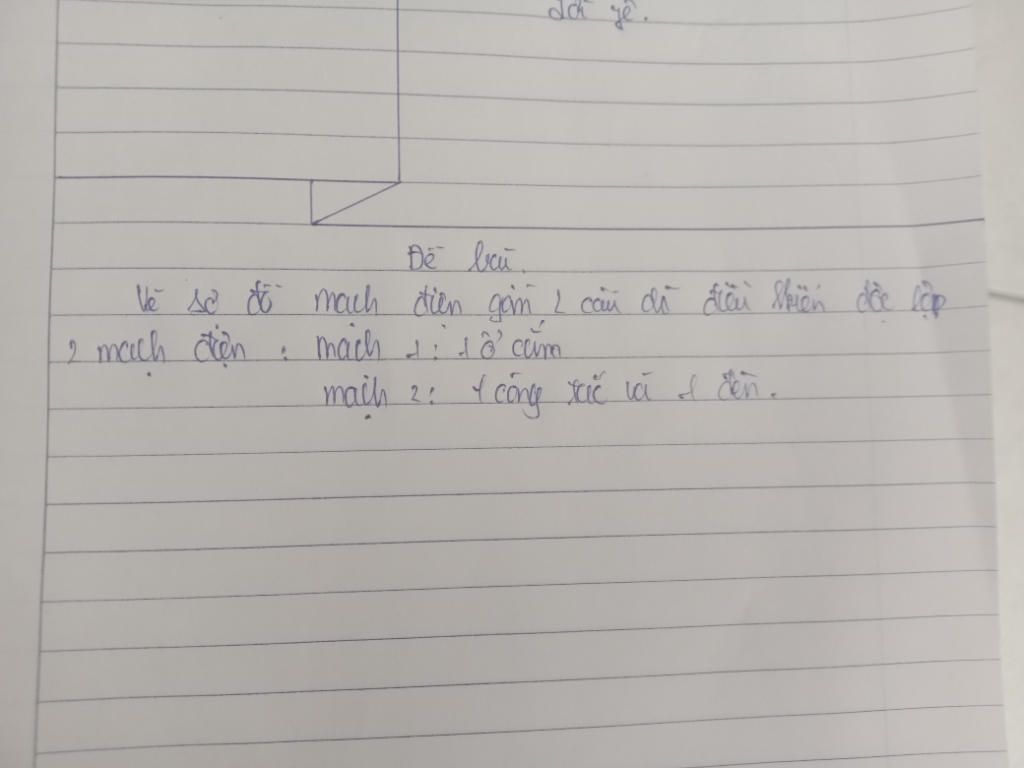 dời yê.
Đề bài.
Vẽ sơ đồ mạch điện gồm 2 cầu chì điều khiển độc lập
2 mạch điện : mạch 1 : 1 ổ cắm
mạch 2 : 1 công tắc và 1 đèn.